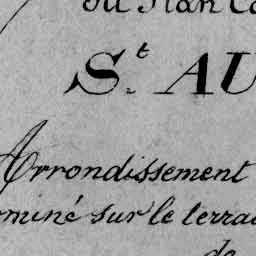 du Plan Ca
S.t AU
Arrondissement
ominé sur le terrai
de